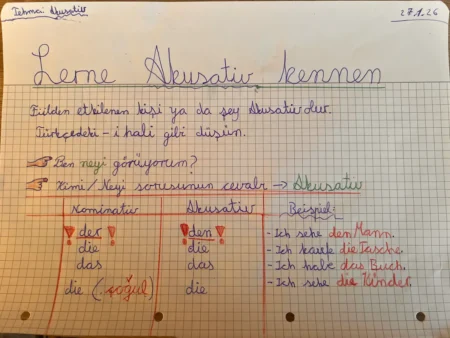 Tehma: Akusativ
27.1.26
Lerne Akusativ kennen
Fiilden etkilenen kişi ya da şey Akusativ dur.
Türkçedeki -i hali gibi düşün.
Ben neyi görüyorum?
Kimi/Neyi sorusunun cevabı → Akusativ
Nominativ Akusativ Beispiel:
! der ! ! den ! - Ich sehe den Mann.
die die - Ich kaufe die Tasche.
das das - Ich habe das Buch.
die (çoğul) die - Ich sehe die Kinder.